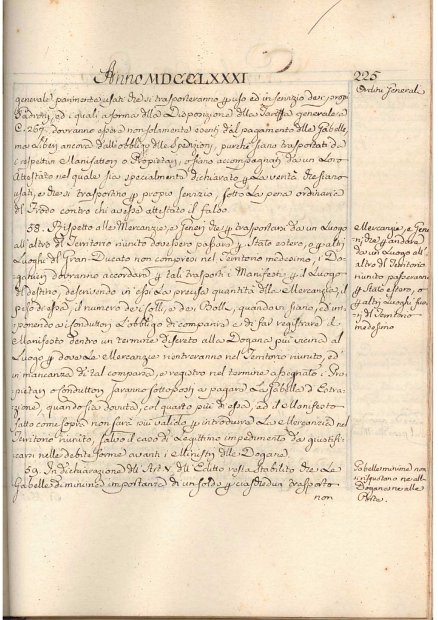 Anno MDCCLXXXI
225
Ordini Generali
generale parimente usati che si trasporteranno p uso ed in servizio de proprj
Padroni, ed i quali a forma della Disposizione della Tariffa generale a
C. 267, dovranno essere non solamente esenti dal pagamento delle Gabelle,
ma liberi ancora dall'obbligo delle spedizioni, purchè siano trasportati da
i respettivi Manifattori o Proprietarj, o siano accompagnati da un Loro
Attestato nel quale sia specialmente dichiarato p La verità che siano
usati, e che si trasportino p proprio servizio, sotto La pena ordinaria
del Frodo contro chi avesse attestato il falso.
58. Rispetto alle Mercanzie, e Generi che p trasportarsi da un Luogo
all'altro del Territorio riunito dovessero passare p Stato estero, o p altri
Luoghi del Gran-Ducato non compresi nel Territorio medesimo, i Do-
ganieri dovranno accordare p tali trasporti i Manifesti p il Luogo
del destino, descrivendo in essi la precisa quantità della Mercanzia, il
peso di essa, il numero dei Colli, e dei Bolli, quando vi siano, ed im-
ponendo ai Conduttori L'obbligo di comparire e di far registrare il
Manifesto dentro un termine discreto alla Dogana più vicina al
Luogo p dove Le Mercanzie rientreranno nel Territorio riunito, ed
in mancanza di tal comparsa, e registro nel termine assegnato i Pro-
prietarj o Conduttori saranno sottoposti a pagare La Gabella d'Estra-
zione, quando sia dovuta, col quarto più di essa, ed il Manifesto
fatto come sopra non sarà più valido p introdurre La Mercanzia nel
Territorio riunito, salvo il caso di Legittimo impedimento da giustifi-
carsi nelle debite forme avanti i Ministri delle Dogane.
59. In dichiarazione dell'Art. V. dell'Editto resta stabilito che Le
Gabelle di minima importanza di un soldo p ciaschedun trasporto
non
Mercanzie, e Gene-
ri che p andare
da un Luogo all'
altro del Territorio
riunito passeranno
p Stato estero, o
p altri Luoghi fuo-
ri del Territorio
medesimo
Gabelle minime non
si riscuotono ne alle
Dogane ne alle
Porte.